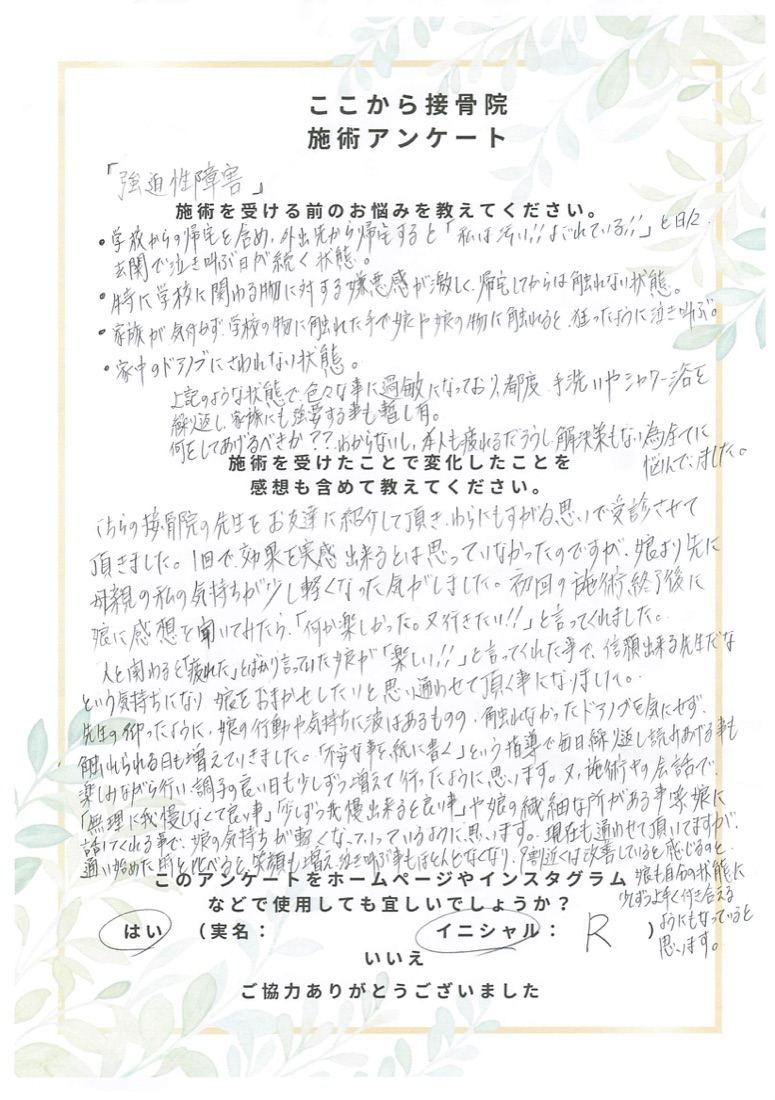 ここから接骨院
施術アンケート
「強迫性障害」
施術を受ける前のお悩みを教えてください。
・学校からの帰宅を含め、外出先から帰宅すると「私は汚い!!よごれている!!」と日々、
玄関で泣き叫ぶ日が続く状態。
・特に学校に関わる物に対する嫌悪感が激しく、帰宅してからは触れない状態。
・家族が気付かず、学校の物に触れた手で娘や娘の物に触れると、狂ったように泣き叫ぶ。
・家中のドアノブにさわれない状態。
上記のような状態で、色々な事に過敏になっており、都度、手洗いやシャワー浴を
繰り返し、家族にも強要する事も暫し有。
何をしてあげるべきか??わからないし、本人も疲れるだろうし、解決策もない為全てに
悩んでいました。
施術を受けたことで変化したことを
感想も含めて教えてください。
こちらの接骨院の先生をお友達に紹介して頂き、わらにもすがる思いで受診させて
頂きました。1回で効果を実感出来るとは思っていなかったのですが、娘より先に
母親の私の気持ちが少し軽くなった気がしました。初回の施術終了後に
娘に感想を聞いてみたら、「何か楽しかった。又行きたい!!」と言ってくれました。
人と関わると「疲れた」とばかり言っていた娘が「楽しい!!」と言ってくれた事で、信頼出来る先生だな
という気持ちになり娘をおまかせしたいと思い通わせて頂く事になりました。
先生の仰ったように、娘の行動や気持ちに波はあるものの、触れなかったドアノブを気にせず、
触れられる日も増えていきました。「不安な事を紙に書く」という指導で毎日繰り返し読みあげる事も
楽しみながら行い、調子の良い日も少しずつ増えて行ったように思います。又、施術中の会話で、
「無理に我慢しなくて良い事」「少しずつ我慢出来ると良い事」や娘の繊細な所がある事等、娘に
話してくれる事で、娘の気持ちが軽くなっていっているように思います。現在も通わせて頂いてますが、
通い始めた時と比べると、笑顔も増え泣き叫ぶ事もほとんどなくなり、7割近くは改善していると感じるのと、
娘も自分の状態に
少しずつ上手く付き合える
ようにもなっていると
思います。
このアンケートをホームページやインスタグラム
などで使用しても宜しいでしょうか?
はい (実名: イニシャル: R )
いいえ
ご協力ありがとうございました